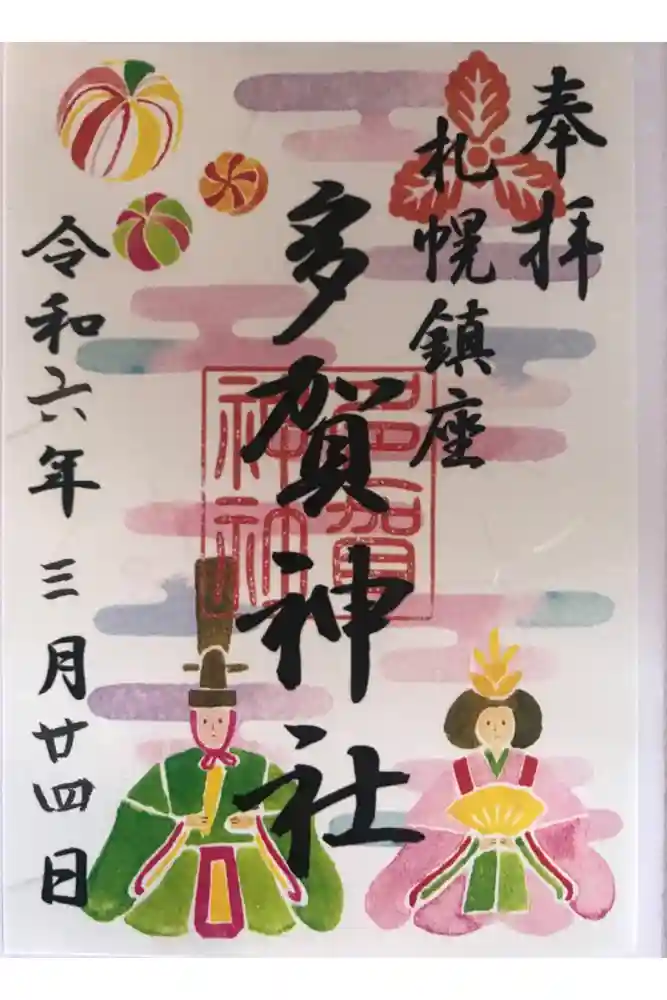 奉拝
札幌鎮座
多賀神社
令和六年三月廿四日